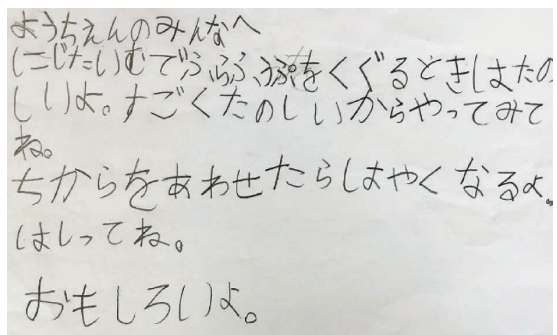 ようちえんのみんなへ
にじたいむでふらふうぷをくぐるときはたの
しいよ。すごくたのしいからやってみて
ね。
ちからをあわせたらはやくなるよ。
はしってね。
おもしろいよ。